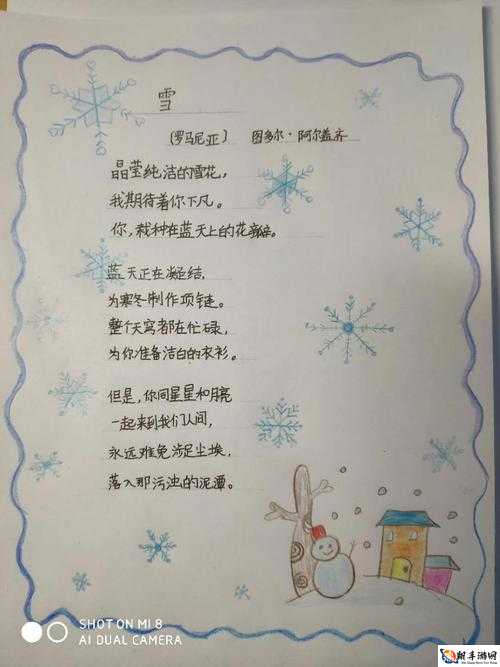 雪
(罗马尼亚) 图多尔·阿尔盖齐
晶莹纯洁的雪花，
我期待着你下凡。
你，栽种在蓝天上的花
蓝天正在凝结，
为寒冬制作项链。
整个天穹都在忙碌，
为你准备洁白的衣衫。
但是，你同星星和月亮
一起来到我们人间，
永远难免涉足尘埃，
落入那污浊的泥潭。
SHOT ON MI 8
AI DUAL CAMERA
解手游网